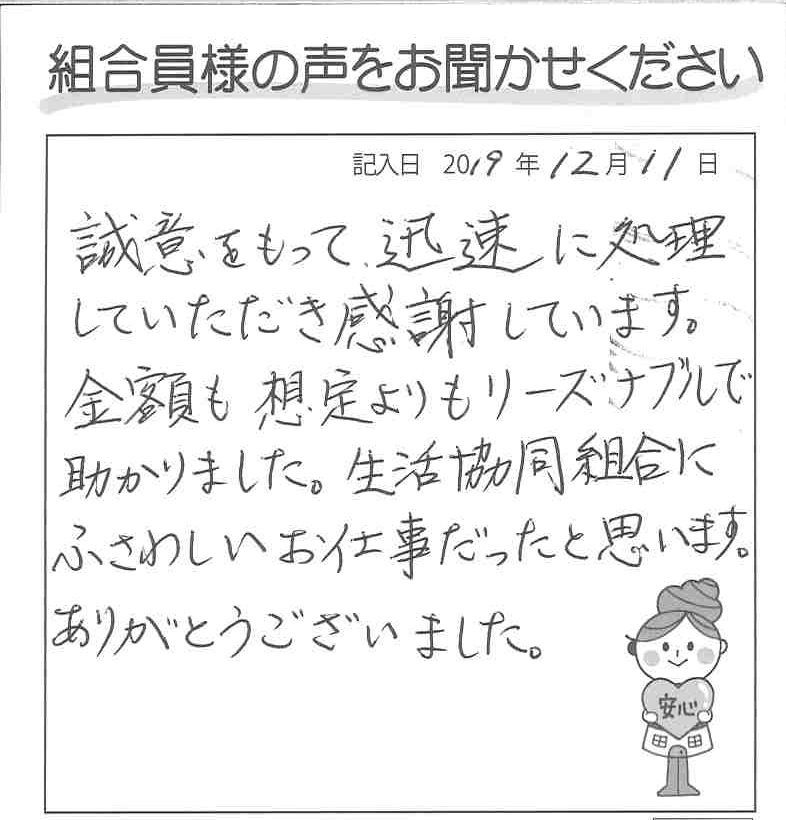 組合員様の声をお聞かせください
記入日 2019年12月11日
誠意をもって、迅速に処理
していただき感謝しています。
金額も想定よりもリーズナブルで
助かりました。生活協同組合に
ふさわしいお仕事だったと思います。
ありがとうございました。
安心